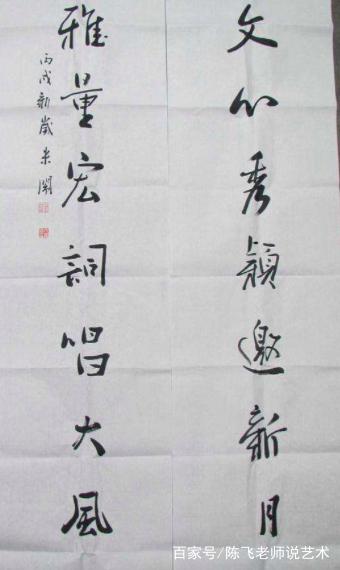 文心秀颖邀新月
雅量宏詞唱大風
丙戌新歲米闹
百家号/陈飞老师说艺术